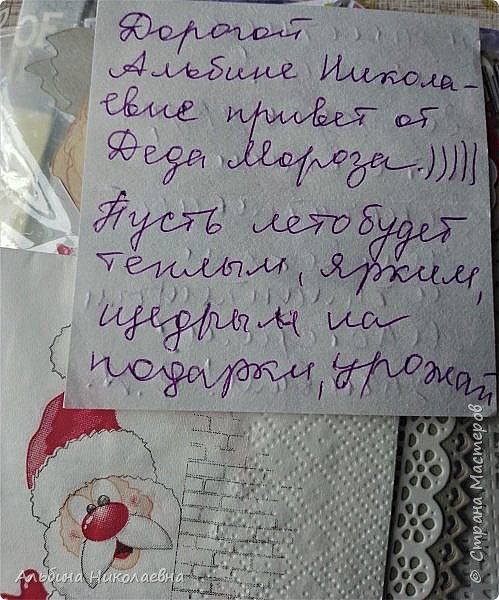 Дорогой
Альбине Никола-
евне привет от
Деда Мороза.)))))
Пусть лето будет
теплым, ярким,
щедрым на
подарки, урожай
Альбина Николаевна
© Страна Мастеров